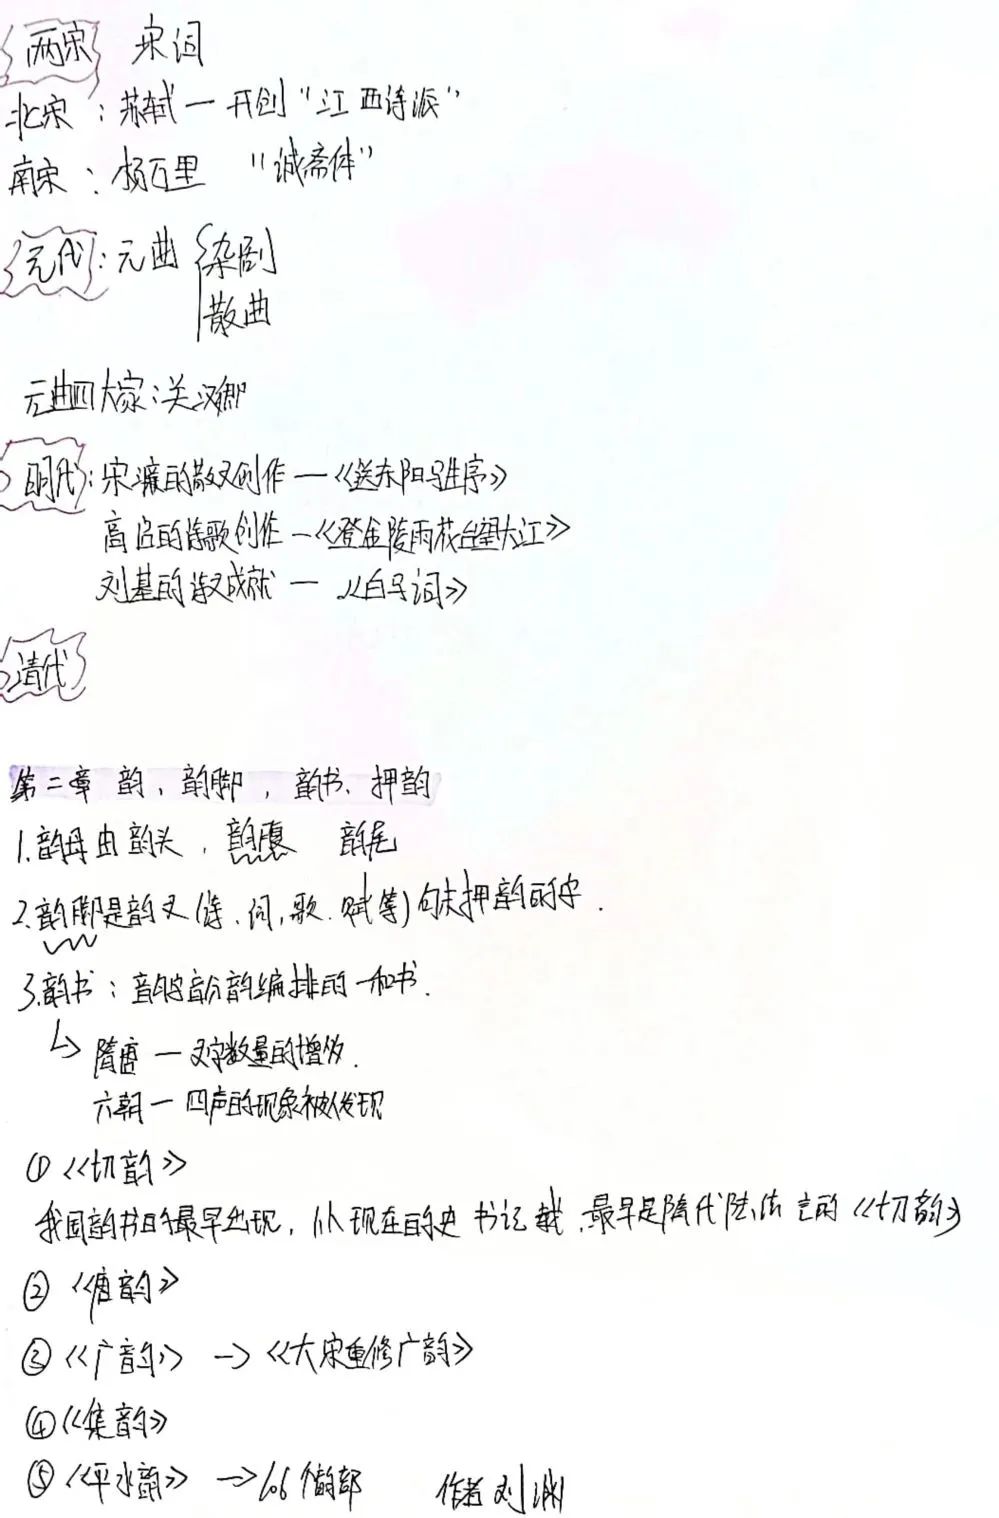 两宋 宋词
北宋：苏轼一开创“江西诗派”
南宋：杨万里 “诚斋体”
元代：元曲{杂剧
散曲
元曲四大家：关汉卿
明代：宋濂的散文创作—《送东阳马生序》
高启的诗歌创作—《登金陵雨花台望大江》
刘基的诗文成就— 《白马词》
清代
第二章 韵、韵脚，韵书、押韵
1.韵母由韵头，韵腹 韵尾
2.韵脚是韵文(诗、词，歌、赋等)句末押韵的字.
3.韵书：韵分韵编排的一种书.
↳ 隋唐 — 文字数量的增多.
六朝— 四声的现象被发现
①《切韵》
我国韵书的最早出现，从现在的史书记载，最早是隋代陆法言的《切韵》
②《唐韵》
③《广韵》→《大宋重修广韵》
④《集韵》
⑤《平水韵》→106个韵部 作者刘渊